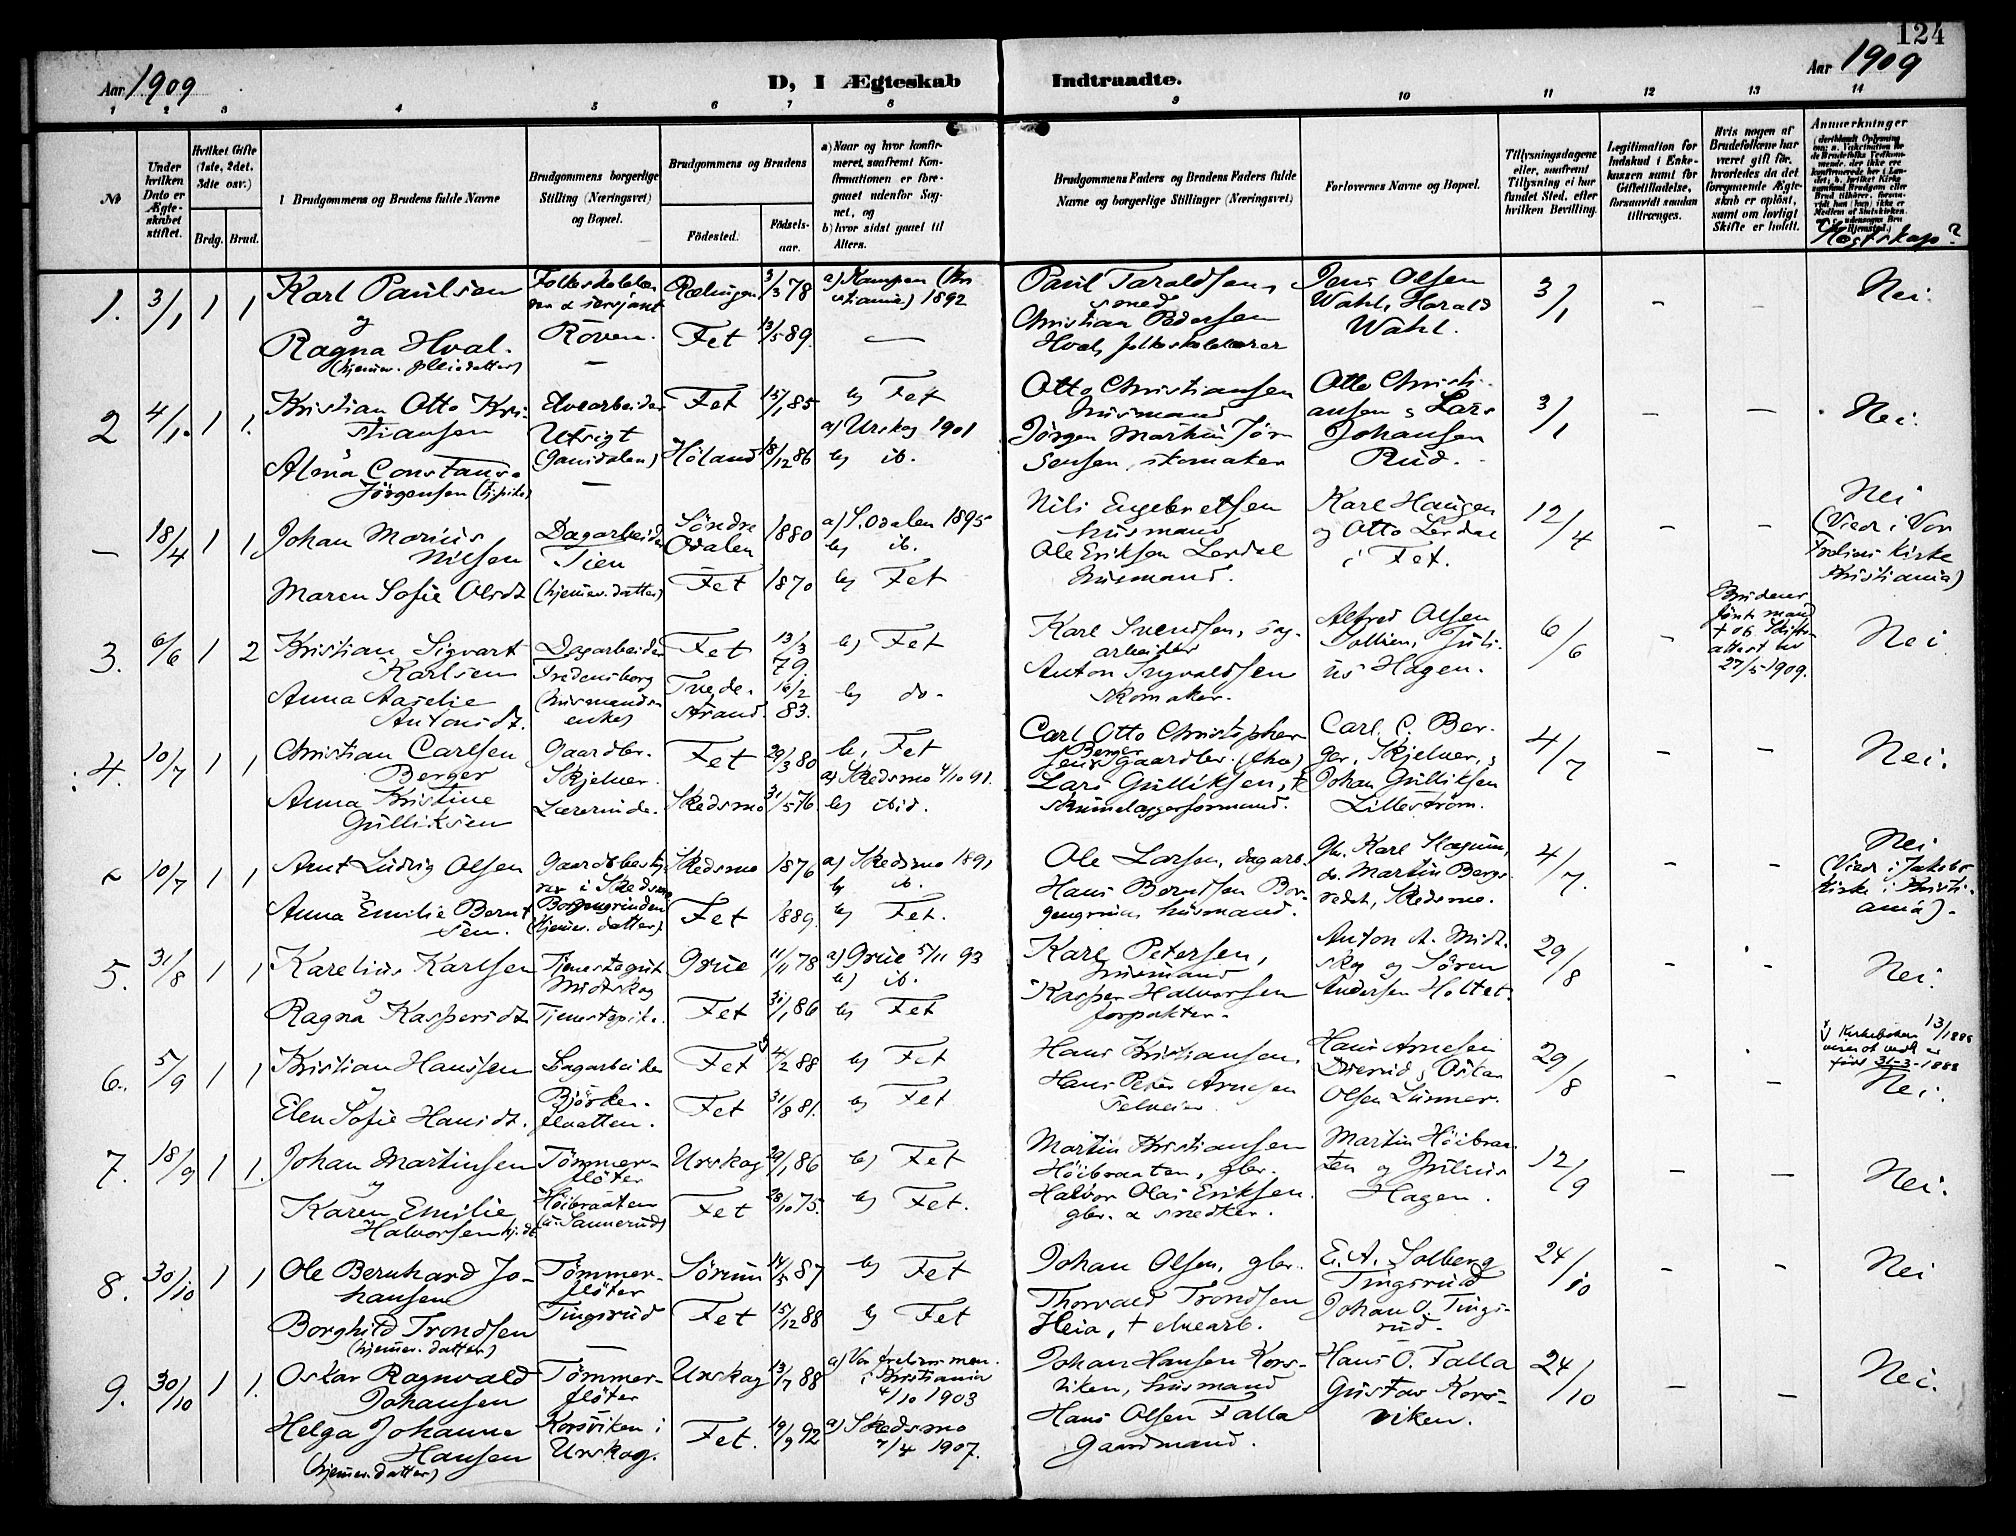 124
Aar 1909
D, I Ægteskab
Indtraadte.
Aar 1909
1 2 3 4 5 6 7 8 9 10 11 12 13 14
№
Under hvilken Dato er Ægteskabet stiftet.
Hvilket Gifte (1ste, 2det, 3die osv.)
Brdg. Brud.
Brudgommens og Brudens fulde Navne
Brudgommens borgerlige Stilling (Næringsvei) og Bopæl.
Brudgommens og Brudens
Fødested.
Fødselsaar.
a) Naar og hvor konfirmeret, saafremt Konfirmationen er foregaaet udenfor Sognet, og
b) hvor sidst gaaet til Alters.
Brudgommens Faders og Brudens Faders fulde Navne og borgerlige Stillinger (Næringsvei)
Forlovernes Navne og Bopæl.
Tillysningsdagene eller, saafremt Tillysning ei har fundet Sted, efter hvilken Bevilling.
Legitimation for Indskud i Enkekassen samt for Giftetilladelse, forsaavidt saadan tiltrænges.
Hvis nogen af Brudefolkene har været gift før, hvorledes da det foregaaende Ægteskab er opløst, samt om lovligt Skifte er holdt.
Anmerkninger
Slegtskap?
1. 3/1 1 1 Karl Paulsen
og
Ragna Hval.
(hjemmev. pleiedatter)
Røven.
Rælingen 3/3 78
Fet 13/5 89.
a) Kampen (Kristiania) 1892
—
Paul Taraldsen,
smed
Christian Pedersen
Hval, folkeskolelærer
Jens Olsen
Wahl, Harald
Wahl.
3/1 – Nei.
2 4/1. 1 1. Kristian Otto Kristiansen
Alma Constanse
Jørgensen
Elvearbeider
Utsigt
(Gansdalen)
—
Fet 15/1 85
Høland 18/12 86
b) Fet
a) Urskog 1901
b) ib.
Otto Christiansen
husmand
Jørgen Martin Jørgensen, skomaker
Otto Christiansen & Lars
Johansen
Rud.
3/1 – – Nei.
– 18/4 1 1 Johan Marius
Nilsen
Maren Sofie Olsdt
Dagarbeider
Tien
(hjemmev. datter)
Søndre
Odalen 1880
Fet 1870
a) S. Odalen 1895
b) ib.
b) Fet
Nils Engebretsen
husmand
Ole Eriksen Lerdal
husmand.
Karl Haugen
og Otto Lerdal
i Fet.
12/4 – –
Nei
(Viet i Vor
Frelsers Kirke
Kristiania)
3. 6/6 1 2 Kristian Sigvart
Karlsen
Anna Aaselie
Antonsdt.
Dagarbeider
Fredensborg
(husmandsenke)
Fet 13/3 79.
Tvedestrand. 16/2 83.
b) Fet
b) do.
Karl Svendsen, sagarbeider
Anton Syvaldsen
skomaker.
Alfred Olsen
Sollien, Julius Hagen.
6/6 –
Brudens
første mand
† og skifteattest av
27/5-1909.
Nei
4. 10/7 1 1 Christian Carlsen
Berger
Anna Kristine
Gulliksen
Gaardbr.
Skjelver.
Lærerinde.
Fet 29/3 80
Skedsmo 31/5 76
b, Fet
a) Skedsmo 4/10 91.
b) ibid.
Carl Otto Christophersen Berger
gaardbr. (dhv)
Lars Gulliksen, †
skumelæggerformand.
Carl. C. Berger, Skjelver,
Johan Gulliksen
Lillestrøm.
4/7 – – Nei.
– 10/7 1 1 Arnt Ludvig Olsen
Anna Emilie Berntsen.
Gaardsbestyrer i Skedsmo
Borgengrinden
(hjemmev. datter)
Skedsmo 1876
Fet 1889.
a) Skedsmo 1891
b) ib.
b) Fet.
Ole Larsen, dagarb.
Hans Berntsen Borgengrind, husmand.
gbr. Karl Hagnum,
do. Martin Bergsredet, Skedsmo.
4/7. – –
Nei
(Viet i Jakobs
Kirke i Kristiania).
5. 31/8 1 1 Karelius Karlsen
og
Ragna Kaspersdt
Tjenestegut
Midtskog
Tjenestepike.
Grue 11/11 78
Fet 31/1 86
a) Grue 5/11 93
b) ib.
b) Fet
Karl Petersen,
husmand
Kasper Halvorsen
forpakter.
Anton A. Midtskog og Søren
Andersen Holtet.
29/8 – Nei.
6. 5/9 1 1 Kristian Hanssen
og
Elen Sofie Hansdt.
Sagarbeider
Bjørkenslaatten.
Fet 4/2 88
Fet 31/8 81.
b) Fet
b) Fet
Hans Kristiansen,
Hans Peter Arnesen
Selveier
Hans Arnesen
Oskar
Olsen Lunner.
29/8 – –
født 31-3-1888
Nei.
7. 18/9 1 1. Johan Martinsen
og
Karen Emilie
Halvorsen hj. dt.
Tømmerfløter
Høibraaten
Urskog 29/1 86
Fet 28/10 75.
b) Fet
b) Fet.
Martin Kristiansen
Høibraaten, gbr.
Halvor Olai Eriksen.
gbr. & snedker.
Martin Høibraaten og Julius
Hagen.
12/9 – – Nei.
8. 30/10 1 1 Ole Bernhard Johansen
Borghild Trondsen
(hjemmev. datter)
Tømmerfløter
Tingsrud
Sørum 14/5 87
Fet 15/12 88
b) Fet
b) Fet
Johan Olsen, gbr.
Thorvald Trondsen
Heia, † elvearb.
E. A. Solberg
Tingsrud
Johan O. Tingsrud.
24/10 – – Nei
9. 30/10 1 1. Oskar Ragnvald
Johansen
Helga Johanne
Hansen
(hjemmev. datter)
Tømmerfløter
Korsviken i
Urskog.
Urskog 13/7 88
Fet. 19/9 92
a) Vor frelsers men.
i Kristiania
4/10 1903
a) Skedsmo
7/4 1907.
Johan Hansen Korsviken, husmand
Hans Olsen Falla
Gaardmand.
Hans O. Falla
Gustav Korsviken.
24/10 – – Nei.